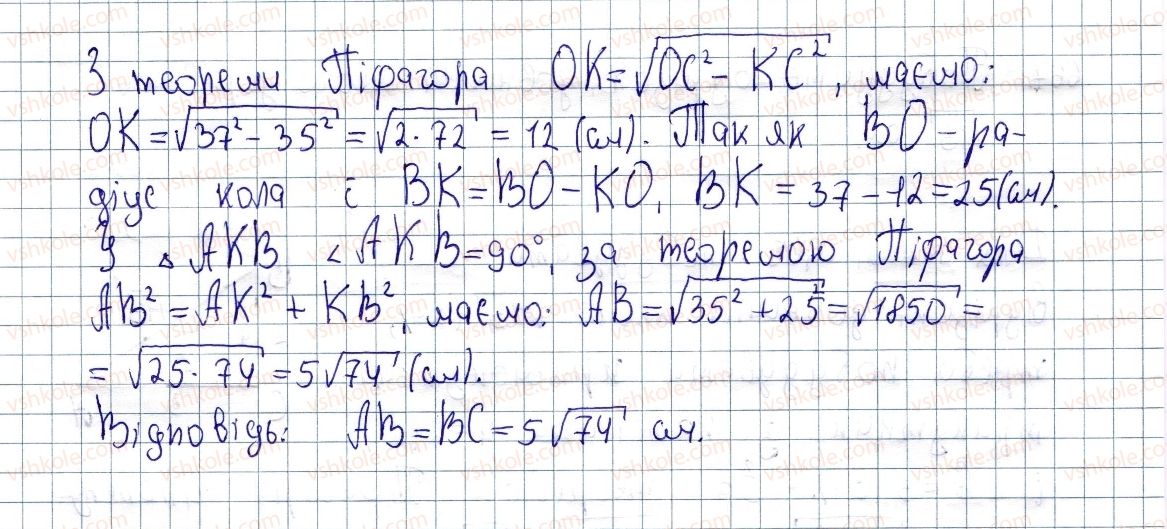 З теореми Піфагора OK=√OC²-KC², маємо:
OK=√37²-35²=√2·72=12 (см). Так як BO-ра-
діус кола і BK=BO-KO, BK=37-12=25(см).
У △AKB <AKB=90°, за теоремою Піфагора
AB²=AK²+KB², маємо: AB=√35²+25²=√1850=
=√25·74=5√74 (см).
Відповідь: AB=BC=5√74 см.